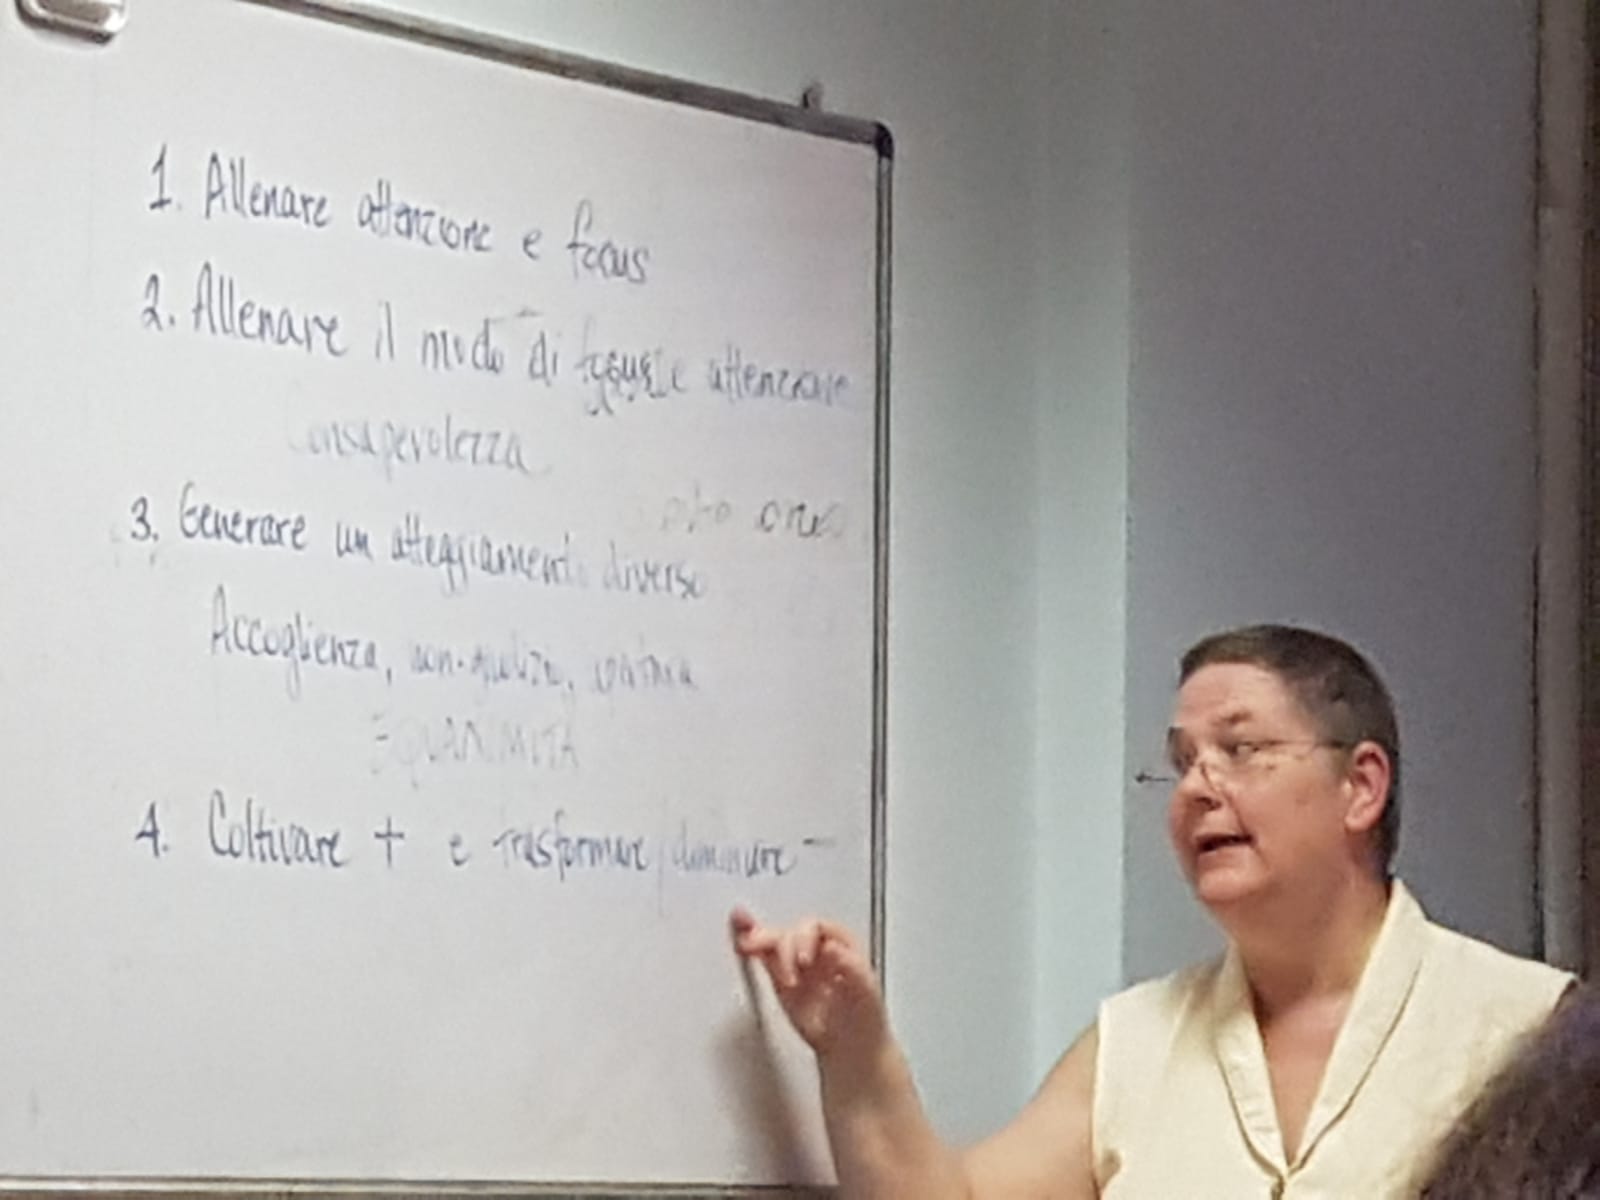 1. Allenare attenzione e focus
2. Allenare il modo di focus e attenzione
Consapevolezza
3. Generare un atteggiamento diverso
Accoglienza, non-giudizio,
EQUANIMITÀ
4. Coltivare + e trasformare/diminuire -